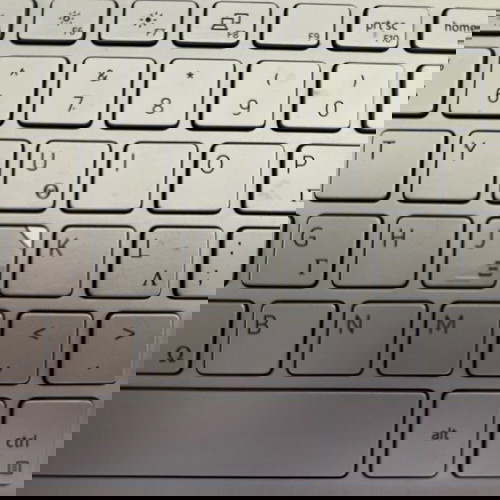 F6 F7 F8 F9 prt sc F10 home
^ & * ( )
6 7 8 9 0
T Y
U I O P
Θ
G H
K L : ;
Γ Λ
B N M
< >
Ω , .
alt ctrl